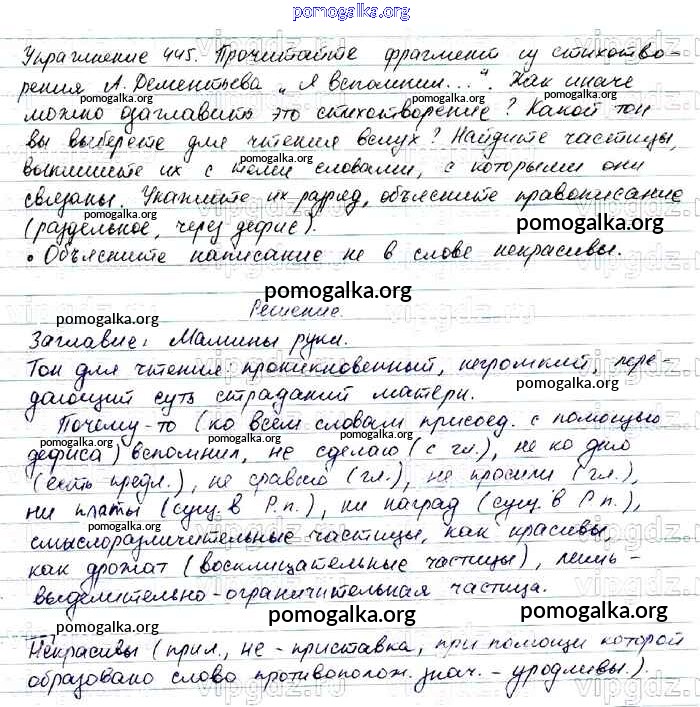 pomogalka.org
Упражнение 445. Прочитайте фрагмент из стихотво-
рения А. Дементьева „Я вспомнил...". Как иначе
pomogalka.org pomogalka.org pomogalka.org
можно озаглавить это стихотворение? Какой тон
вы выберете для чтения вслух? Найдите частицы,
pomogalka.org
выпишите их с теми словами, с которыми они
связаны. Укажите их разряд, объясните правописание
pomogalka.org pomogalka.org
(раздельное, через дефис).
• Объясните написание не в слове некрасивы.
pomogalka.org
Решение.
pomogalka.org
Заглавие: Мамины руки.
Тон для чтения: проникновенный, негромкий, пере-
pomogalka.org
дающий суть страданий матери.
Почему-то (ко всем словам присоед. с помощью
pomogalka.org pomogalka.org pomogalka.org
дефиса) вспомнил, не сделаю (с гл.), не ко дню
(есть предл.), не сравню (гл.), не просили (гл.),
ни платы (сущ. в Р.п.), ни наград (сущ. в Р.п.),
pomogalka.org pomogalka.org pomogalka.org
смыслоразличительные частицы, как красивы,
как дрожат (восклицательные частицы), лишь -
выделительно-ограничительная частица.
pomogalka.org pomogalka.org pomogalka.org
Некрасивы (прил., не - приставка, при помощи которой
образовано слово противополож. знач. - уродливы.).